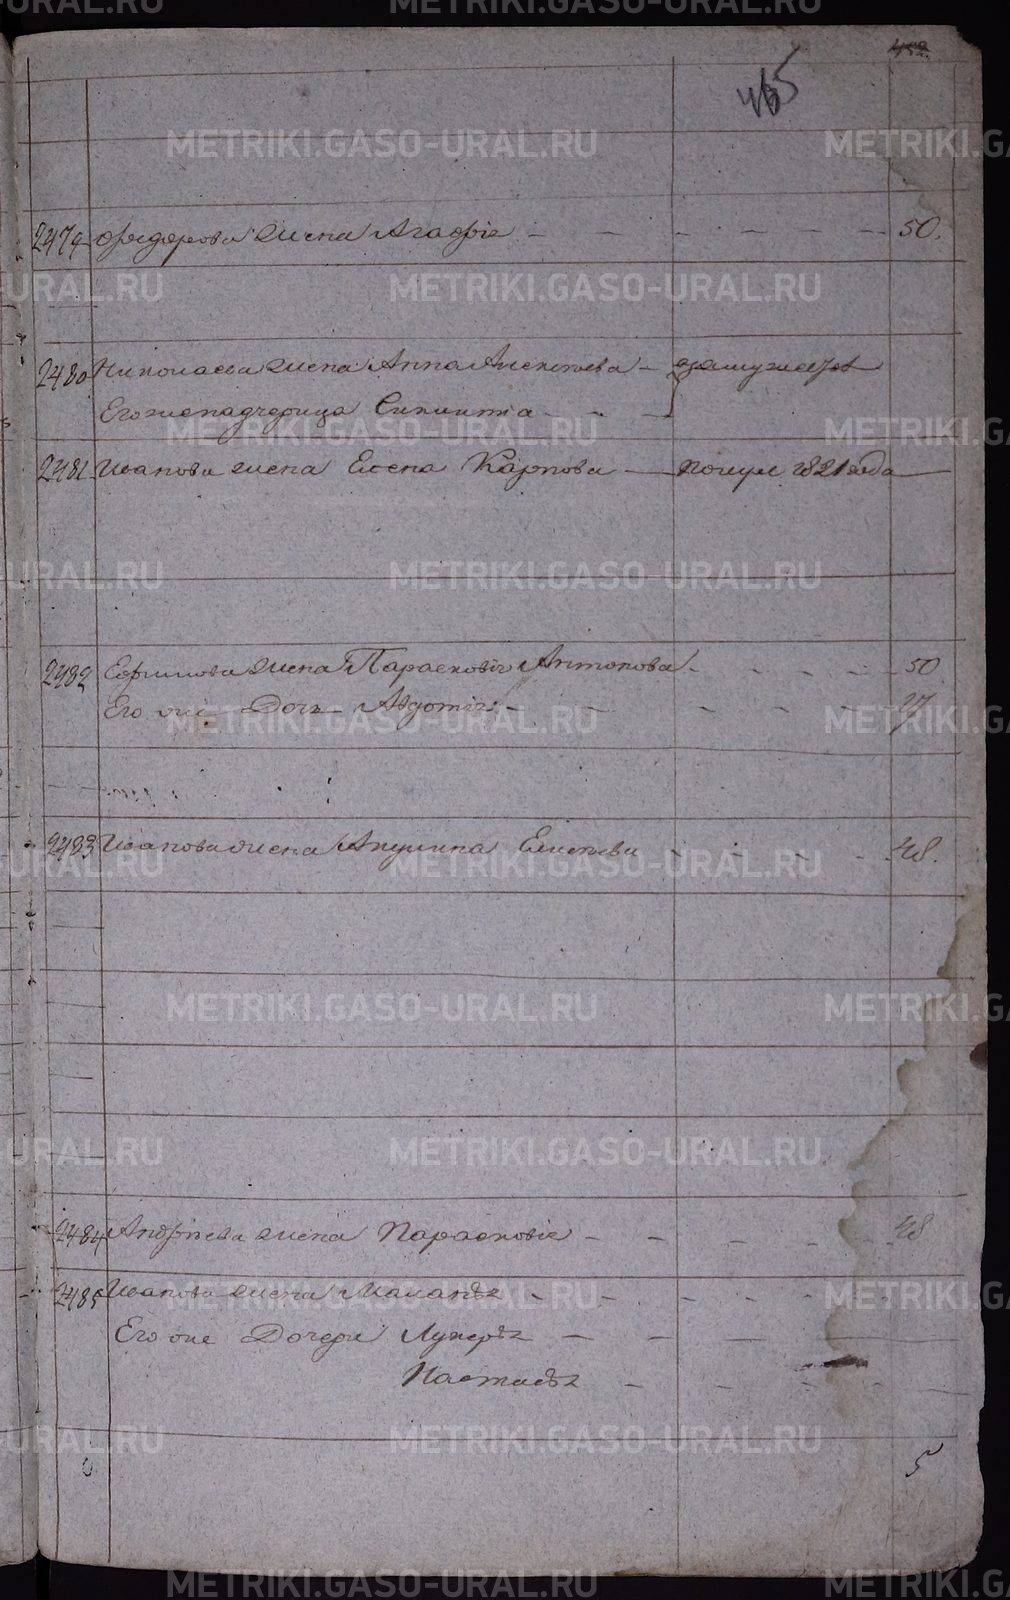 452
465
2479 Федорова жена Агафiя - - - - - - 50.
2480 Николаева жена Анна Алексѣева - замужест
Его же падчерица
2481 Иванова жена Елена Карпова — померл 1821 года
2482 Ефимова жена Парасковiя Антонова - - - - - 50
Его же Дочь Авдотiя - - - - - 27
2483 Иванова жена Акулина Елисѣева - - - - 48.
2484 Андрѣева жена Парасковiя - - - - 48
2485 Иванова жена Маланья - - - - -
Его же Дочери Лукерья - - -
Настасья - - - -
5
METRIKI.GASO-URAL.RU